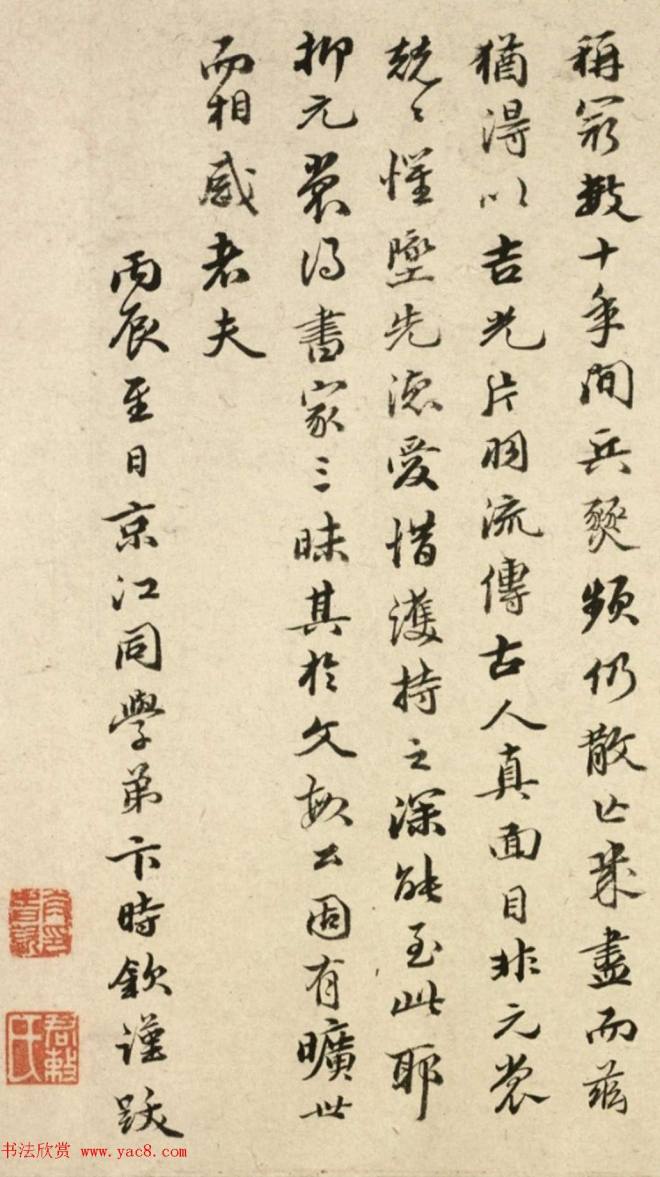 稱最數十年間兵燹頻仍散亡幾盡而茲
猶得以吉光片羽流傳古人真面目非元裳
兢〻懼墜先德愛惜護持之深能至此耶
抑元裳得書家三昧其於文敏公固有曠世
而相感者夫
丙辰至日京江同學弟卞時欽謹跋
书法欣赏 www.yac8.com